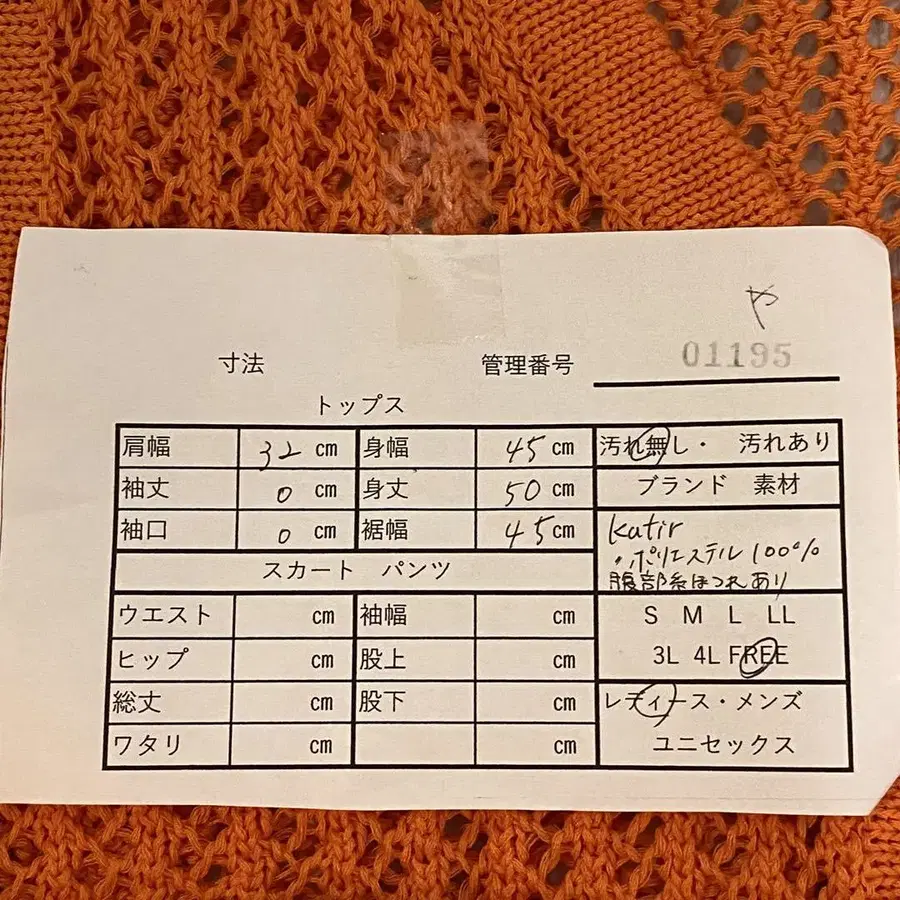 や
寸法 管理番号 01195
トップス
肩幅 32 cm 身幅 45 cm 汚れ無し・ 汚れあり
袖丈 0 cm 身丈 50 cm ブランド 素材
袖口 0 cm 裾幅 45 cm Katir
・ポリエステル 100%
スカート パンツ 腹部糸ほつれあり
ウエスト cm 袖幅 cm S M L LL
ヒップ cm 股上 cm 3L 4L FREE
総丈 cm 股下 cm レディース・メンズ
ワタリ cm cm ユニセックス